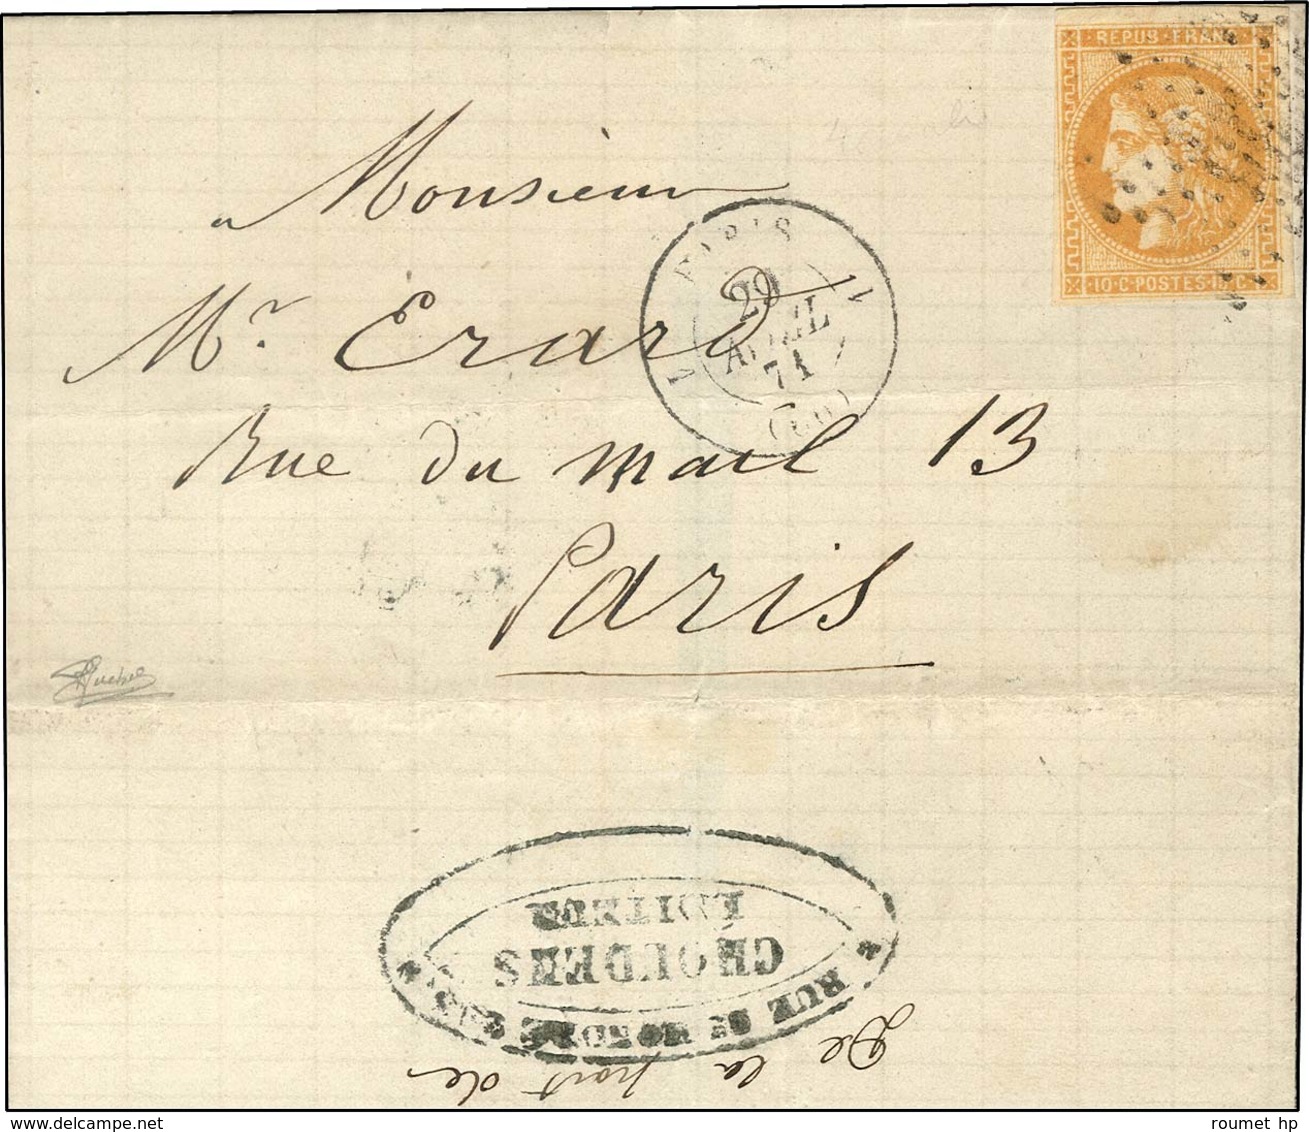 REPUB · FRANC ·
10 · C · POSTES · 10 · C
Monsieur
Mr. Erard
Rue du Mail 13
Paris
PARIS
29
AVRIL
71
(60)
RUE St HONORÉ
CHOUDENS
ÉDITEUR
De la part de
roumet hp